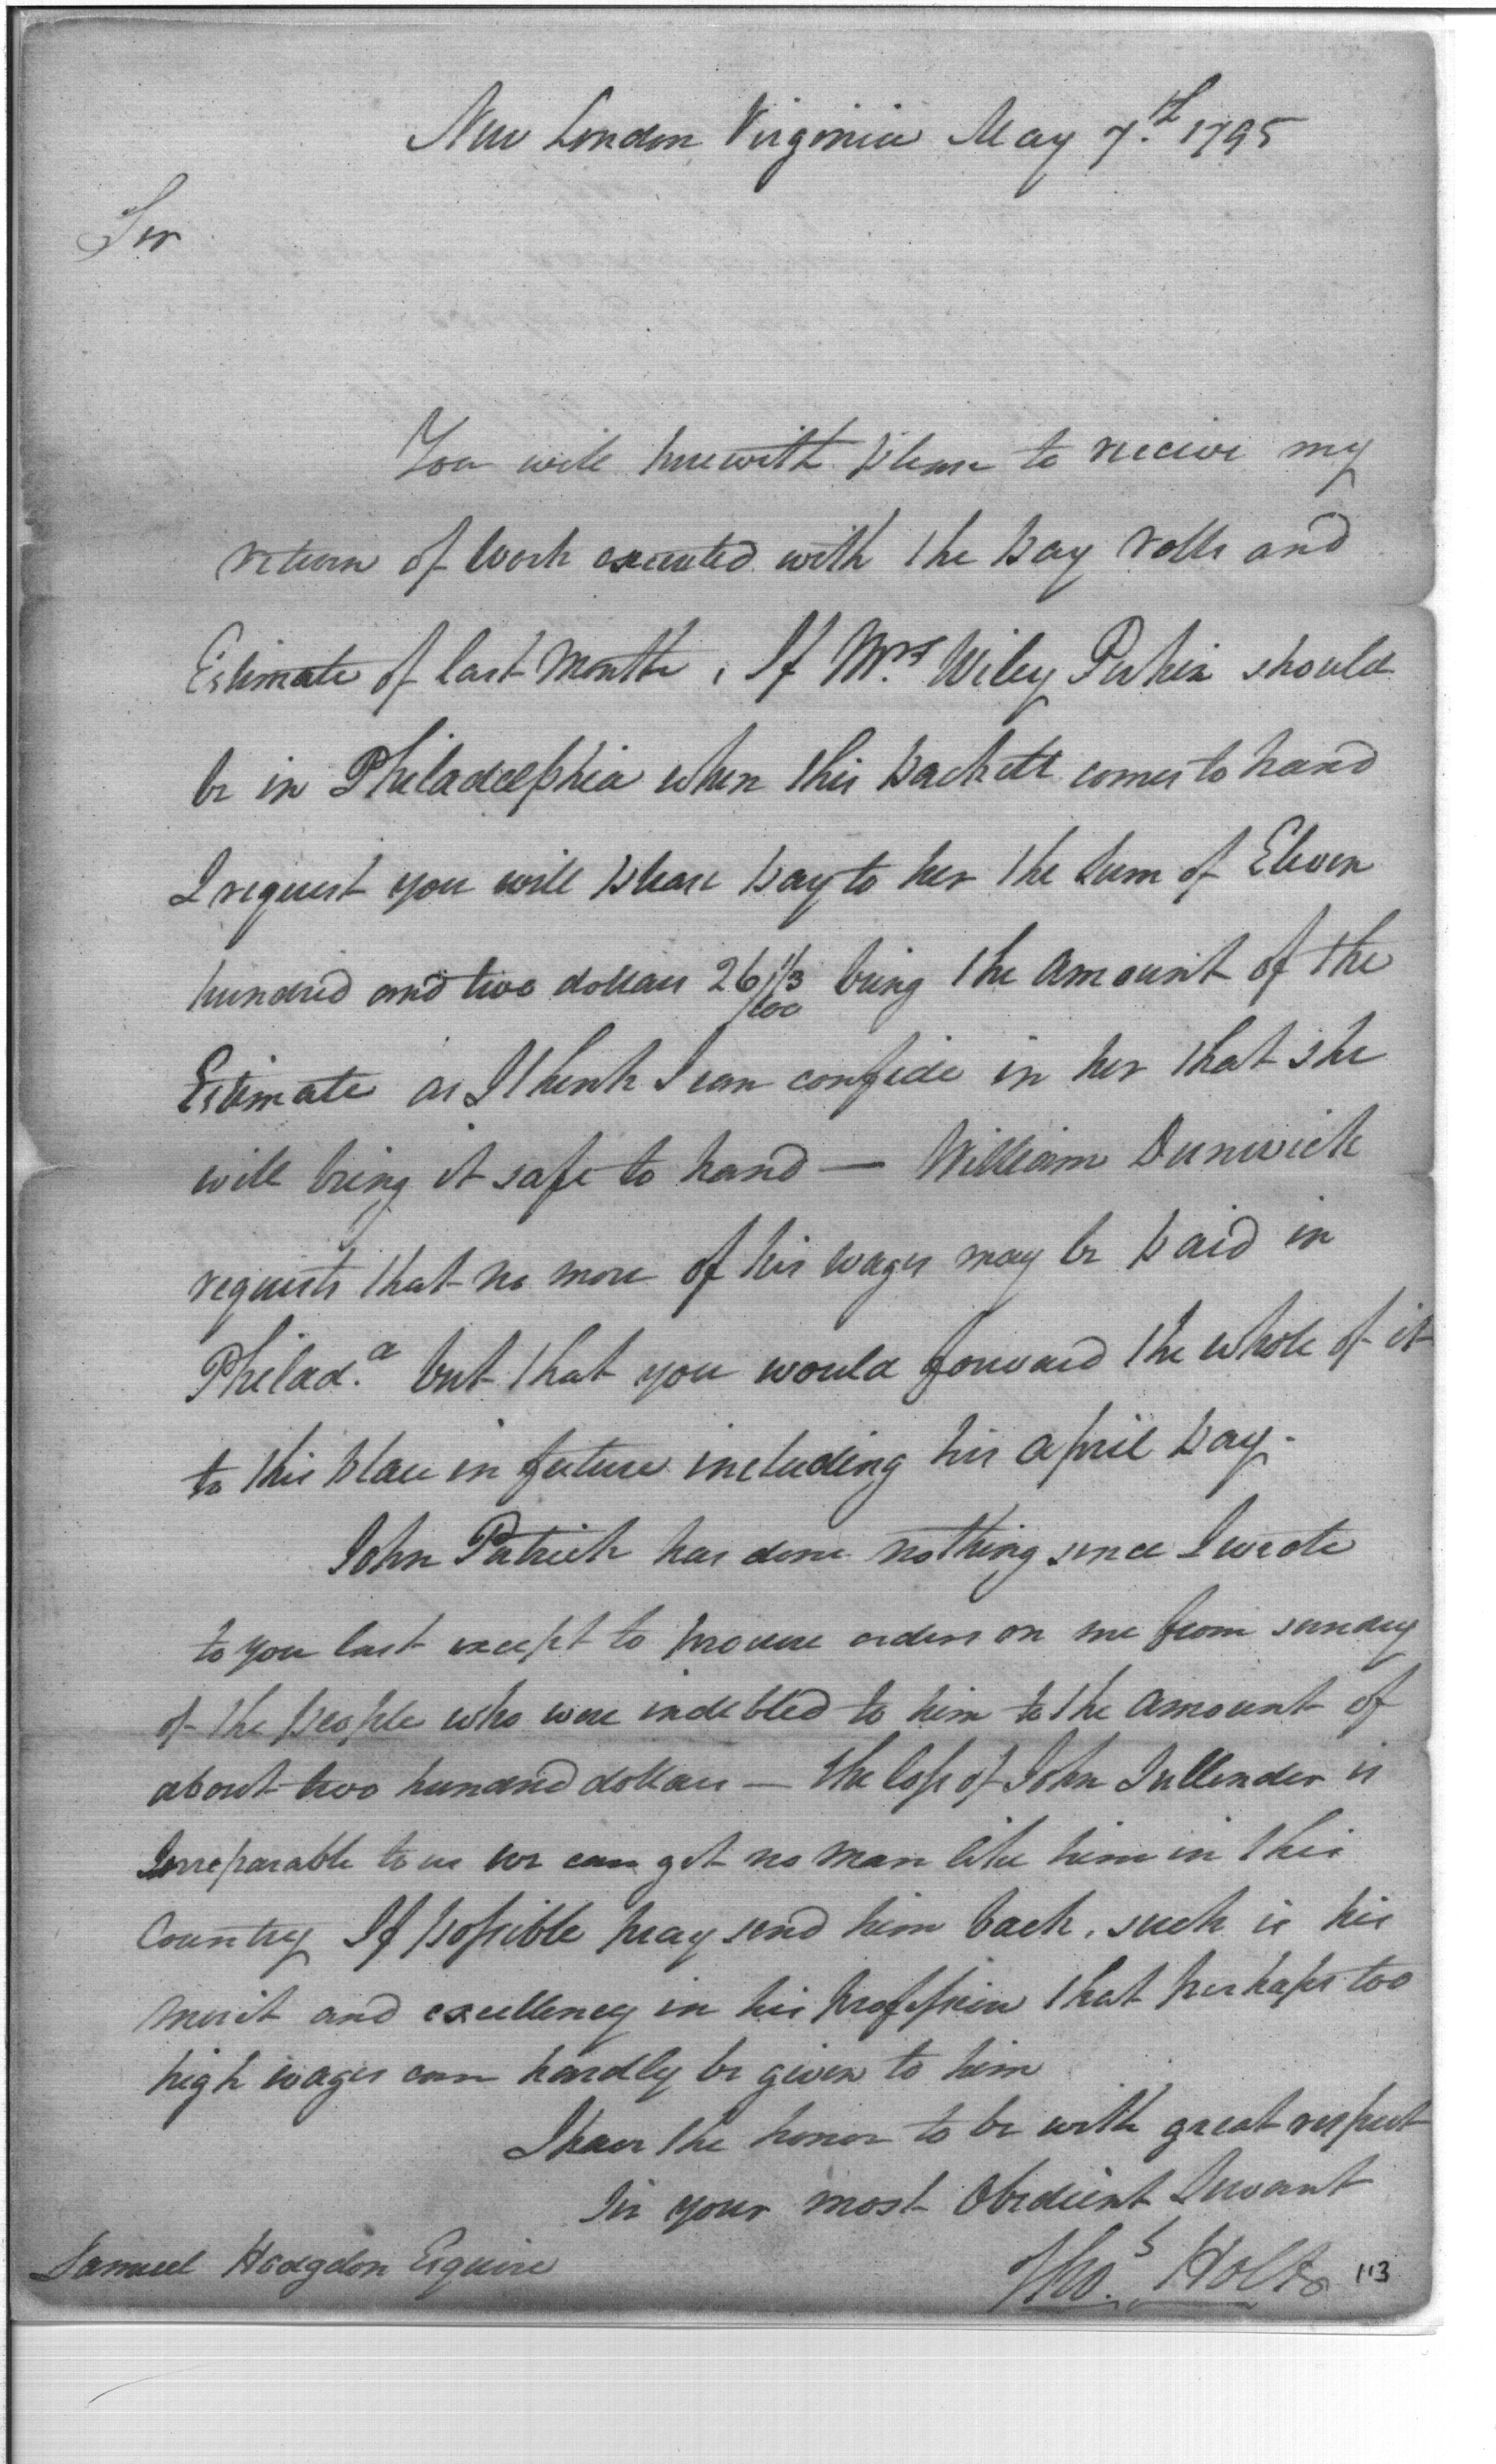 New London Virginia May 7.th 1795
Sir
You will herewith please to receive my
return of work executed with the pay rolls and
Estimate of last Month. If Mrs. Wiley Perkin should
be in Philadelphia when this packett comes to hand
I request you will please pay to her the Sum of Eleven
hundred and two dollars 26 1/3/100 being the amount of the
Estimate as I think I can confide in her that she
will bring it safe to hand — William Dunwick
requests that no more of his wages may be paid in
Philad.a but that you would forward the whole of it
to this place in future including his april pay.
John Patrick has done nothing since I wrote
to you last except to procure orders on me from sundry
of the people who were indebted to him to the amount of
about two hundred dollars — the loss of John Jullender is
Irreparable to us we can get no man like him in this
Country If possible pray send him back, such is his
merit and excellency in his profession that perhaps too
high wages can hardly be given to him
I have the honor to be with great respect
Sir your most Obedient Servant
Samuel Hodgdon Esquire
Tho.s Holt 113